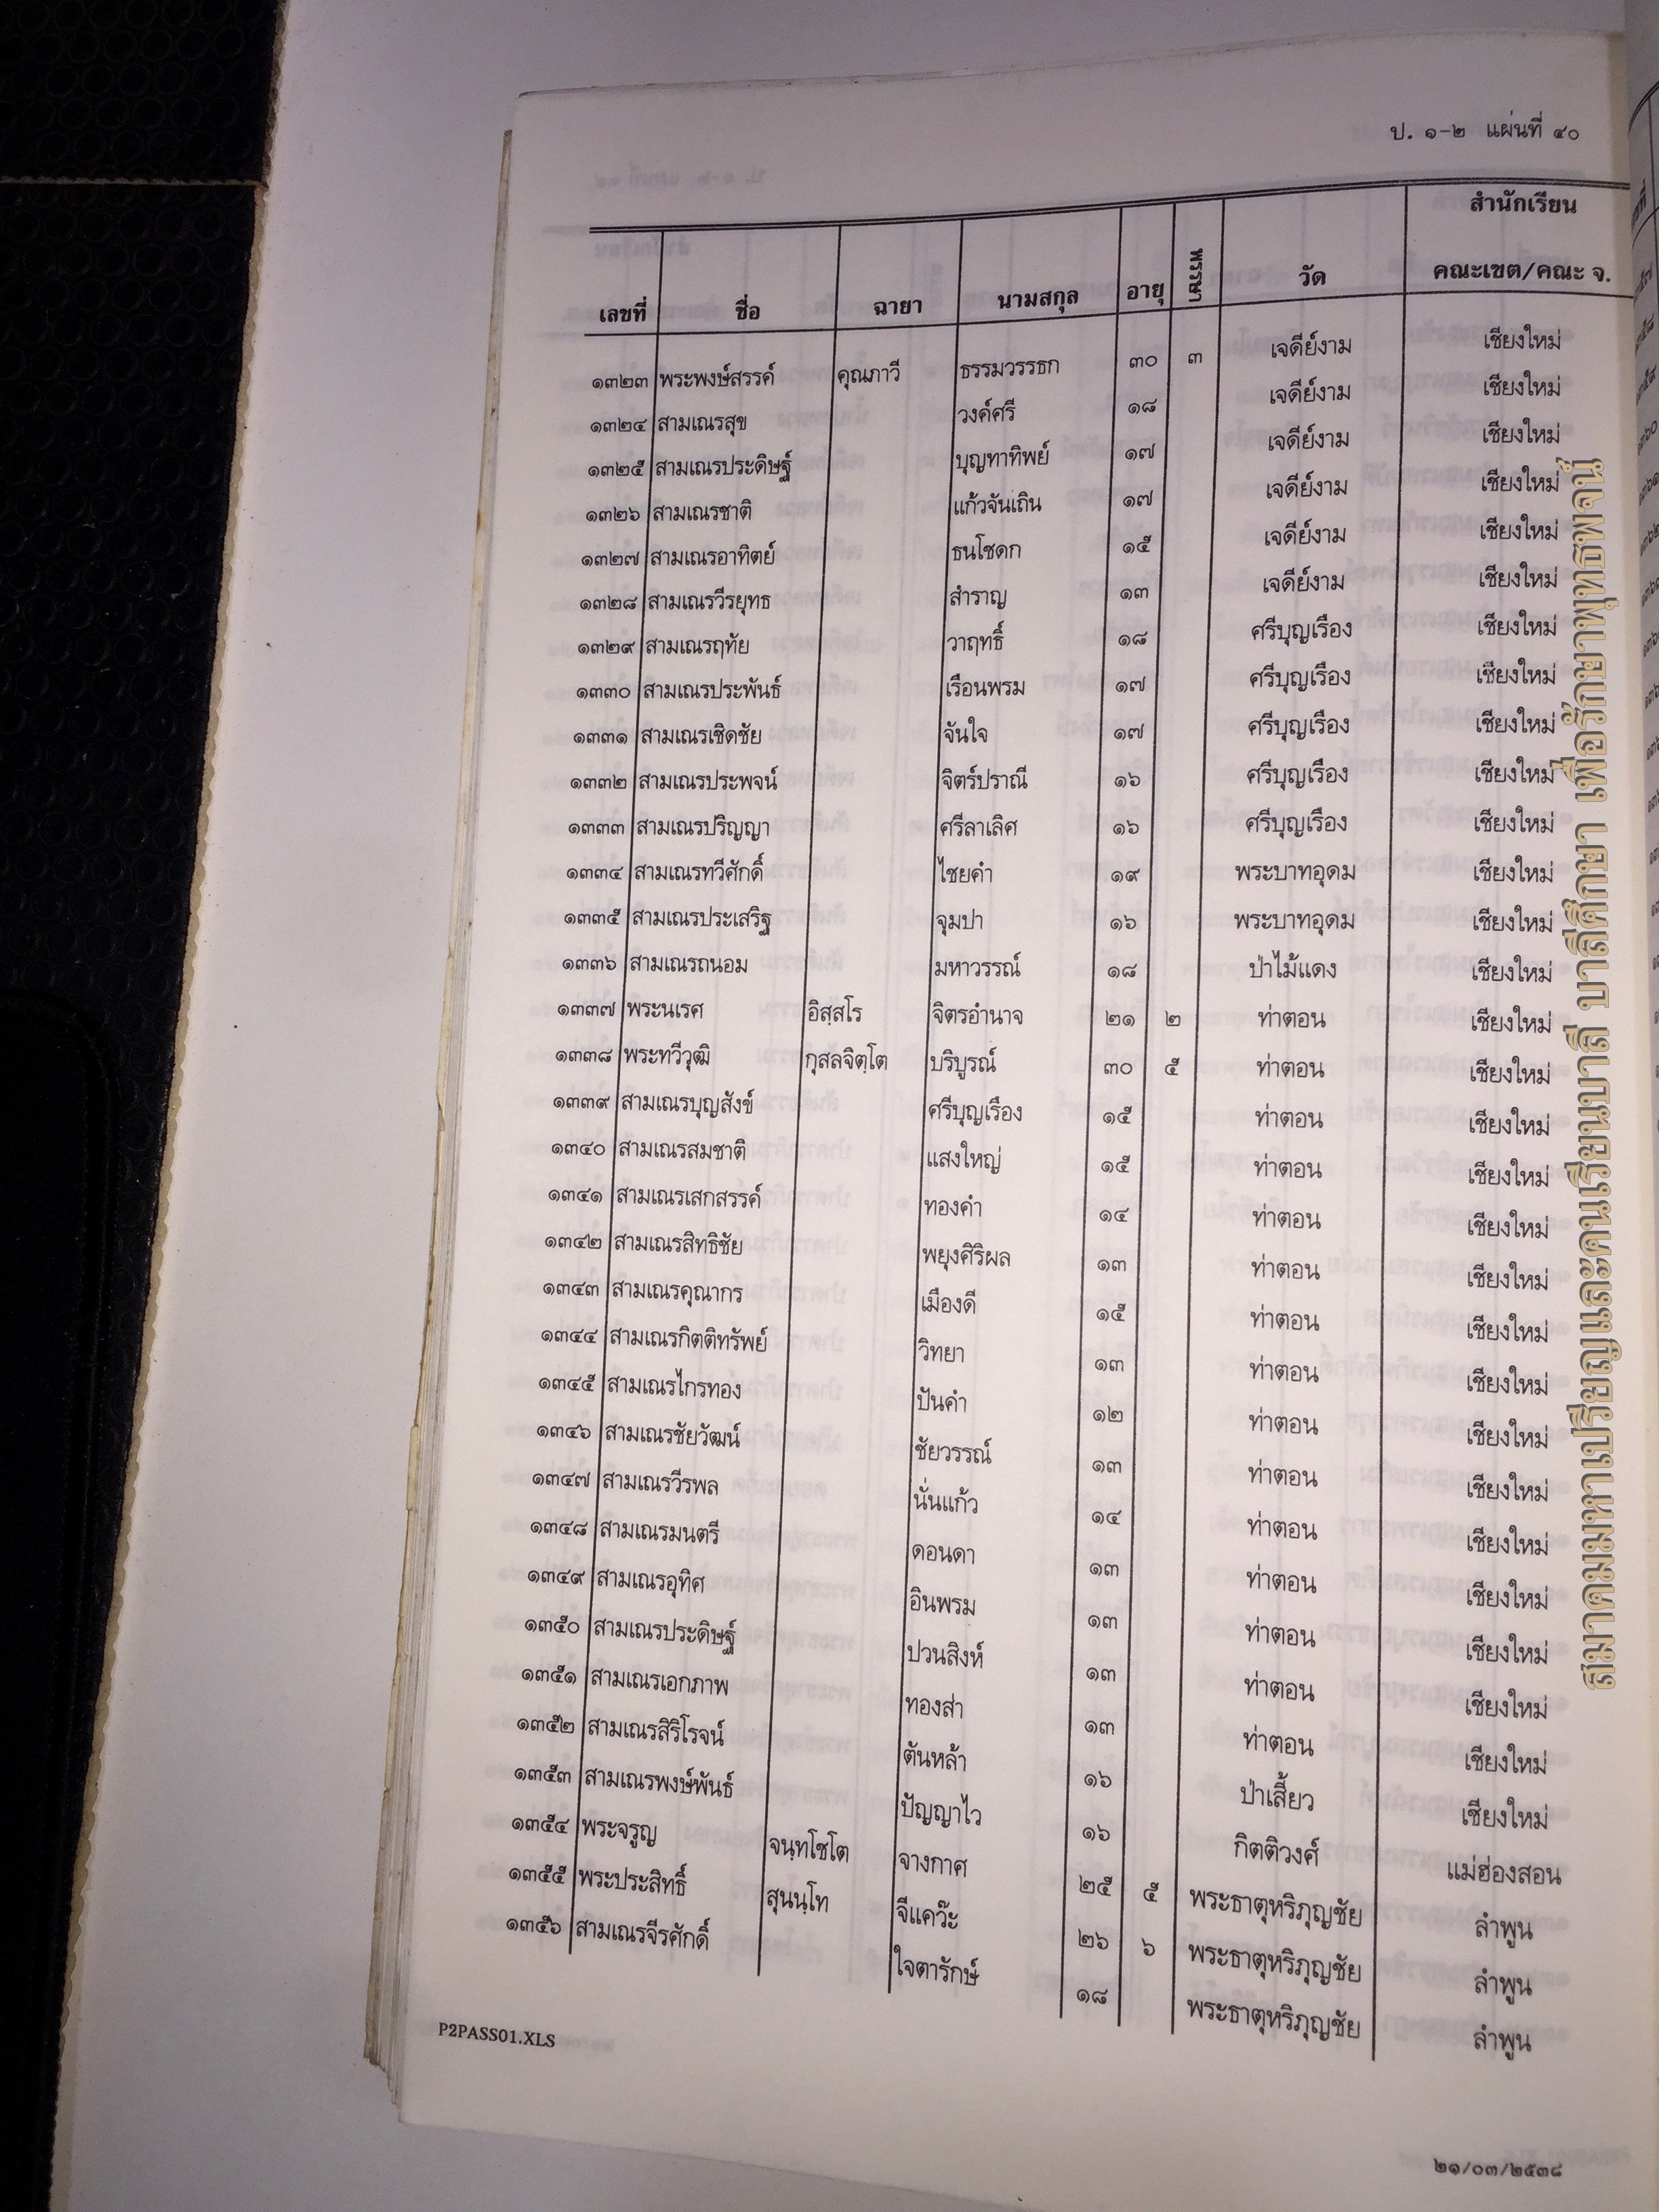 ป. ๑-๒ แผ่นที่ ๔๐
เลขที่ ชื่อ ฉายา นามสกุล อายุ พรรษา วัด สำนักเรียน คณะเขต/คณะ จ.
๑๓๒๓ พระพงษ์สรรค์ คุณภาวี ธรรมวรรธก ๓๐ ๓ เจดีย์งาม เชียงใหม่
๑๓๒๔ สามเณรสุข วงค์ศรี ๑๘ เจดีย์งาม เชียงใหม่
๑๓๒๕ สามเณรประดิษฐ์ บุญทาทิพย์ ๑๗ เจดีย์งาม เชียงใหม่
๑๓๒๖ สามเณรชาติ แก้วจันเถิน ๑๗ เจดีย์งาม เชียงใหม่
๑๓๒๗ สามเณรอาทิตย์ ธนโชดก ๑๕ เจดีย์งาม เชียงใหม่
๑๓๒๘ สามเณรวีรยุทธ สำราญ ๑๓ เจดีย์งาม เชียงใหม่
๑๓๒๙ สามเณรฤทัย วาฤทธิ์ ๑๘ ศรีบุญเรือง เชียงใหม่
๑๓๓๐ สามเณรประพันธ์ เรือนพรม ๑๗ ศรีบุญเรือง เชียงใหม่
๑๓๓๑ สามเณรเชิดชัย จันใจ ๑๗ ศรีบุญเรือง เชียงใหม่
๑๓๓๒ สามเณรประพจน์ จิตร์ปราณี ๑๖ ศรีบุญเรือง เชียงใหม่
๑๓๓๓ สามเณรปริญญา ศรีลาเลิศ ๑๖ ศรีบุญเรือง เชียงใหม่
๑๓๓๔ สามเณรทวีศักดิ์ ไชยคำ ๑๙ พระบาทอุดม เชียงใหม่
๑๓๓๕ สามเณรประเสริฐ จุมปา ๑๖ พระบาทอุดม เชียงใหม่
๑๓๓๖ สามเณรถนอม มหาวรรณ์ ๑๘ ป่าไม้แดง เชียงใหม่
๑๓๓๗ พระนเรศ อิสฺสโร จิตรอำนาจ ๒๑ ๒ ท่าตอน เชียงใหม่
๑๓๓๘ พระทวีวุฒิ กุสลจิตฺโต บริบูรณ์ ๓๐ ๕ ท่าตอน เชียงใหม่
๑๓๓๙ สามเณรบุญสังข์ ศรีบุญเรือง ๑๕ ท่าตอน เชียงใหม่
๑๓๔๐ สามเณรสมชาติ แสงใหญ่ ๑๕ ท่าตอน เชียงใหม่
๑๓๔๑ สามเณรเสกสรรค์ ทองคำ ๑๔ ท่าตอน เชียงใหม่
๑๓๔๒ สามเณรสิทธิชัย พยุงศิริผล ๑๓ ท่าตอน เชียงใหม่
๑๓๔๓ สามเณรคุณากร เมืองดี ๑๕ ท่าตอน เชียงใหม่
๑๓๔๔ สามเณรกิตติทรัพย์ วิทยา ๑๓ ท่าตอน เชียงใหม่
๑๓๔๕ สามเณรไกรทอง ปันคำ ๑๒ ท่าตอน เชียงใหม่
๑๓๔๖ สามเณรชัยวัฒน์ ชัยวรรณ์ ๑๓ ท่าตอน เชียงใหม่
๑๓๔๗ สามเณรวีรพล นั่นแก้ว ๑๔ ท่าตอน เชียงใหม่
๑๓๔๘ สามเณรมนตรี ดอนดา ๑๓ ท่าตอน เชียงใหม่
๑๓๔๙ สามเณรอุทิศ อินพรม ๑๓ ท่าตอน เชียงใหม่
๑๓๕๐ สามเณรประดิษฐ์ ปวนสิงห์ ๑๓ ท่าตอน เชียงใหม่
๑๓๕๑ สามเณรเอกภาพ ทองส่า ๑๓ ท่าตอน เชียงใหม่
๑๓๕๒ สามเณรสิริโรจน์ ต้นหล้า ๑๖ ป่าเสี้ยว เชียงใหม่
๑๓๕๓ สามเณรพงษ์พันธ์ ปัญญาไว ๑๖ กิตติวงศ์ แม่ฮ่องสอน
๑๓๕๔ พระจรูญ จนฺทโชโต จางกาศ ๒๕ ๕ พระธาตุหริภุญชัย ลำพูน
๑๓๕๕ พระประสิทธิ์ สุนนฺโท จีแคว๊ะ ๒๖ ๖ พระธาตุหริภุญชัย ลำพูน
๑๓๕๖ สามเณรจีรศักดิ์ ใจตารักษ์ ๑๘ พระธาตุหริภุญชัย ลำพูน
P2PASS01.XLS
๒๑/๐๓/๒๕๓๘
สมาคมมหาเปรียญและคนเรียนบาลี บาลีศึกษา เพื่อรักษาพุทธพจน์